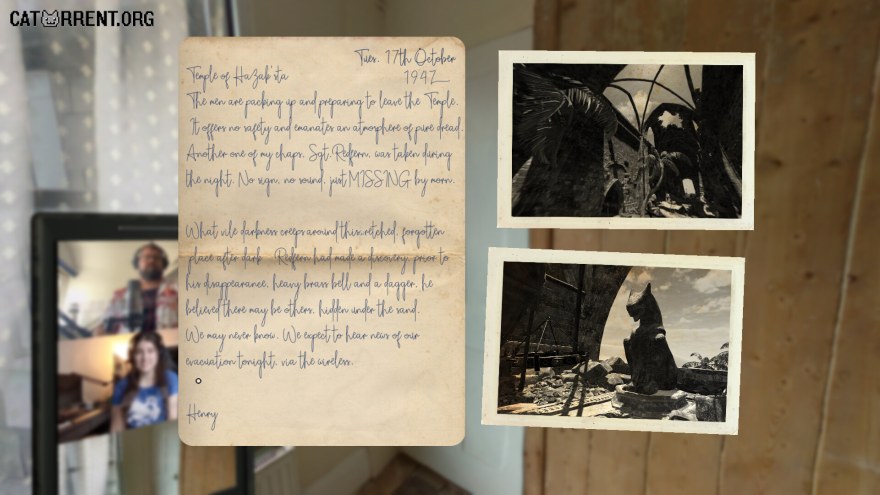 CATORRENT.ORG
Tues. 17th October
Temple of Hazab'sta
1947
The men are packing up and preparing to leave the Temple.
It offers no safety and emanates an atmosphere of pure dread.
Another one of my chaps, Sgt. Redfern, was taken during
the night. No sign, no sound, just MISSING by morn.
What vile darkness creeps around this retched, forgotten
place after dark. Redfern had made a discovery, prior to
his disappearance, heavy brass bell and a dagger, he
believed there may be others, hidden under the sand.
We may never know. We expect to hear news of our
evacuation tonight, via the wireless.
Henry